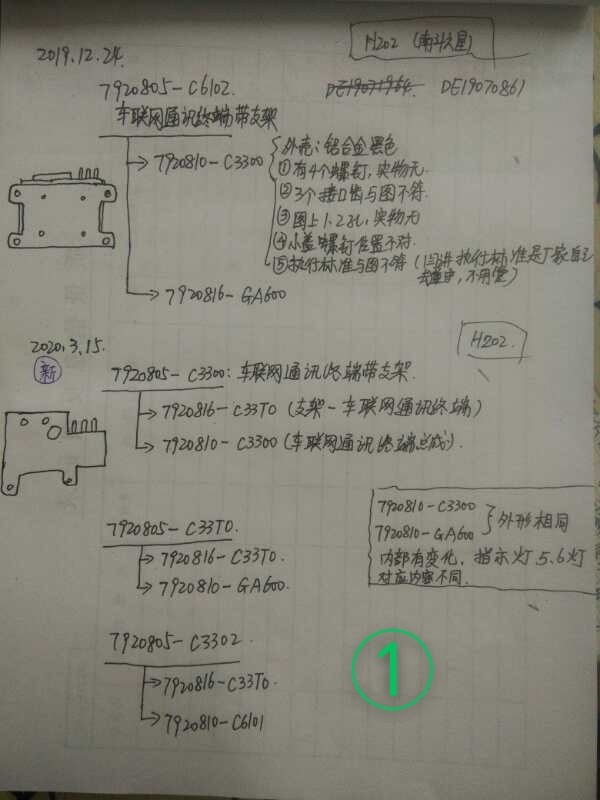 H202 (南斗六星)
2019.12.24.
7920805-C6102.
DE19071964. DE19070861
车联网通讯终端带支架
7920810-C3300
外壳：铝合金黑色
①有4个螺钉，实物无.
②3个接口齿与图不符.
③图上1.2孔，实物无
④小盖螺钉位置不对.
⑤执行标准与图不符 (执行标准是厂家自己
，不用管)
7920816-GA600
2020.3.15.
H202.
新
7920805-C3300：车联网通讯终端带支架.
7920816-C33T0 (支架-车联网通讯终端)
7920810-C3300 (车联网通讯终端总成).
7920810-C3300
7920810-GA600
外形相同
内部有变化，指示灯5.6灯
对应内容不同.
7920805-C33T0.
7920816-C33T0.
7920810-GA600.
7920805-C3302.
7920816-C33T0.
7920810-C6101
1